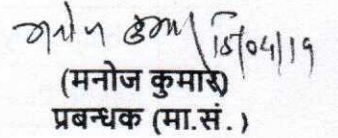 मनोज कुमार 15/04/19
(मनोज कुमार)
प्रबन्धक (मा.सं.)